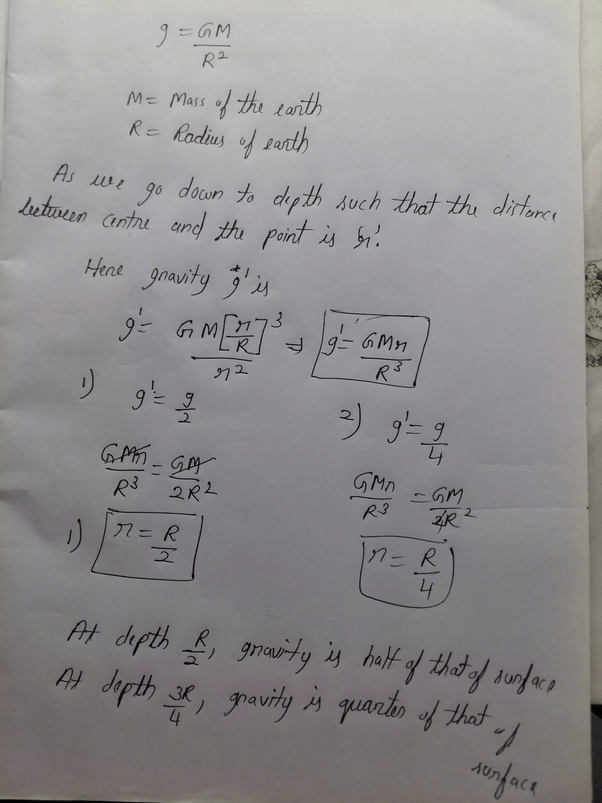 g = GM/R²
M = Mass of the earth
R = Radius of earth
As we go down to depth such that the distance
between centre and the point is 'r'.
Here gravity g' is
g' = GM[r/R]³/r² ⇒ g' = GMr/R³
1) g' = g/2
GMr/R³ = GM/2R²
1) r = R/2
2) g' = g/4
GMr/R³ = GM/4R²
r = R/4
At depth R/2, gravity is half of that of surface
At depth 3R/4, gravity is quarter of that of
surface